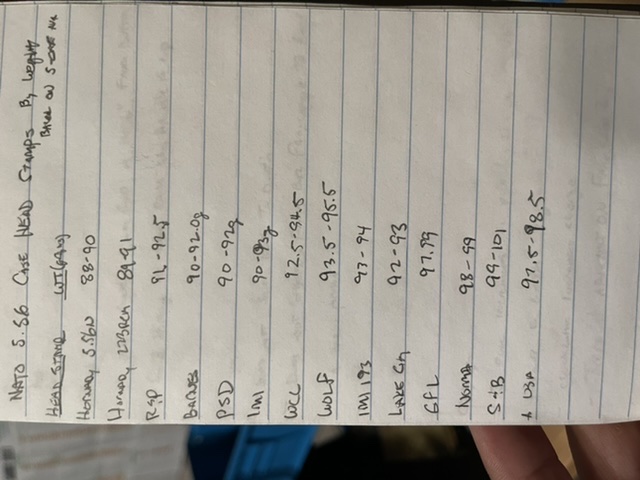 NATO 5.56 CASE HEAD STAMPS By WEIGHT
BASED ON 5-CASE
HEAD STAMP WT(GRN)
HORNADY 5.56N 88-90
HORNADY 223REM 89-91
RSP 91-92.5
BARNES 90-92.0g
PSD 90-92g
IMI 90-93g
WCC 92.5-94.5
WOLF 93.5-95.5
IMI 193 93-94
LAKE City 92-93
GFL 97.99
NORMA 98-99
S+B 99-101
USA 97.5-98.5